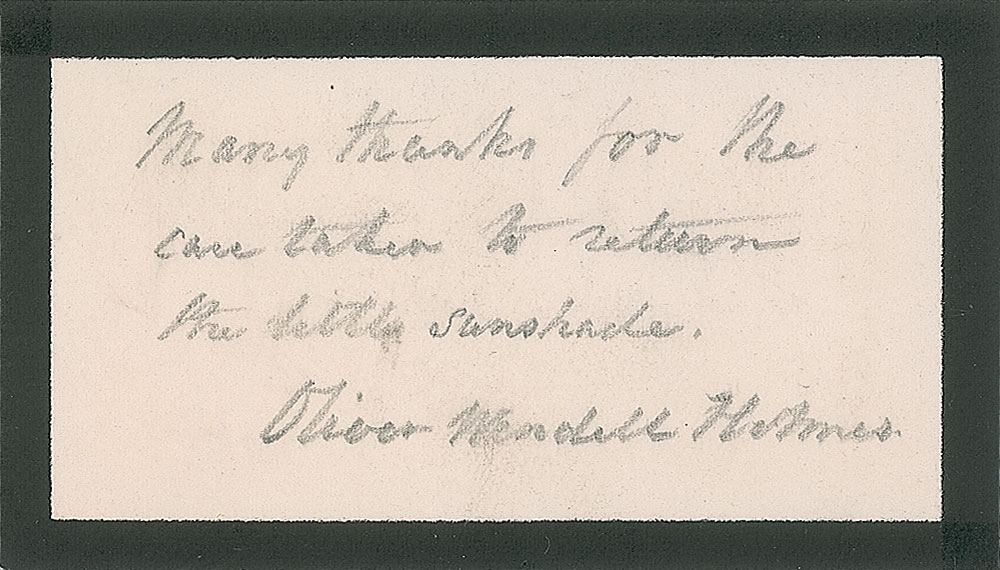 Many thanks for the
care taken to return
the little sunshade.
Oliver Wendell Holmes.